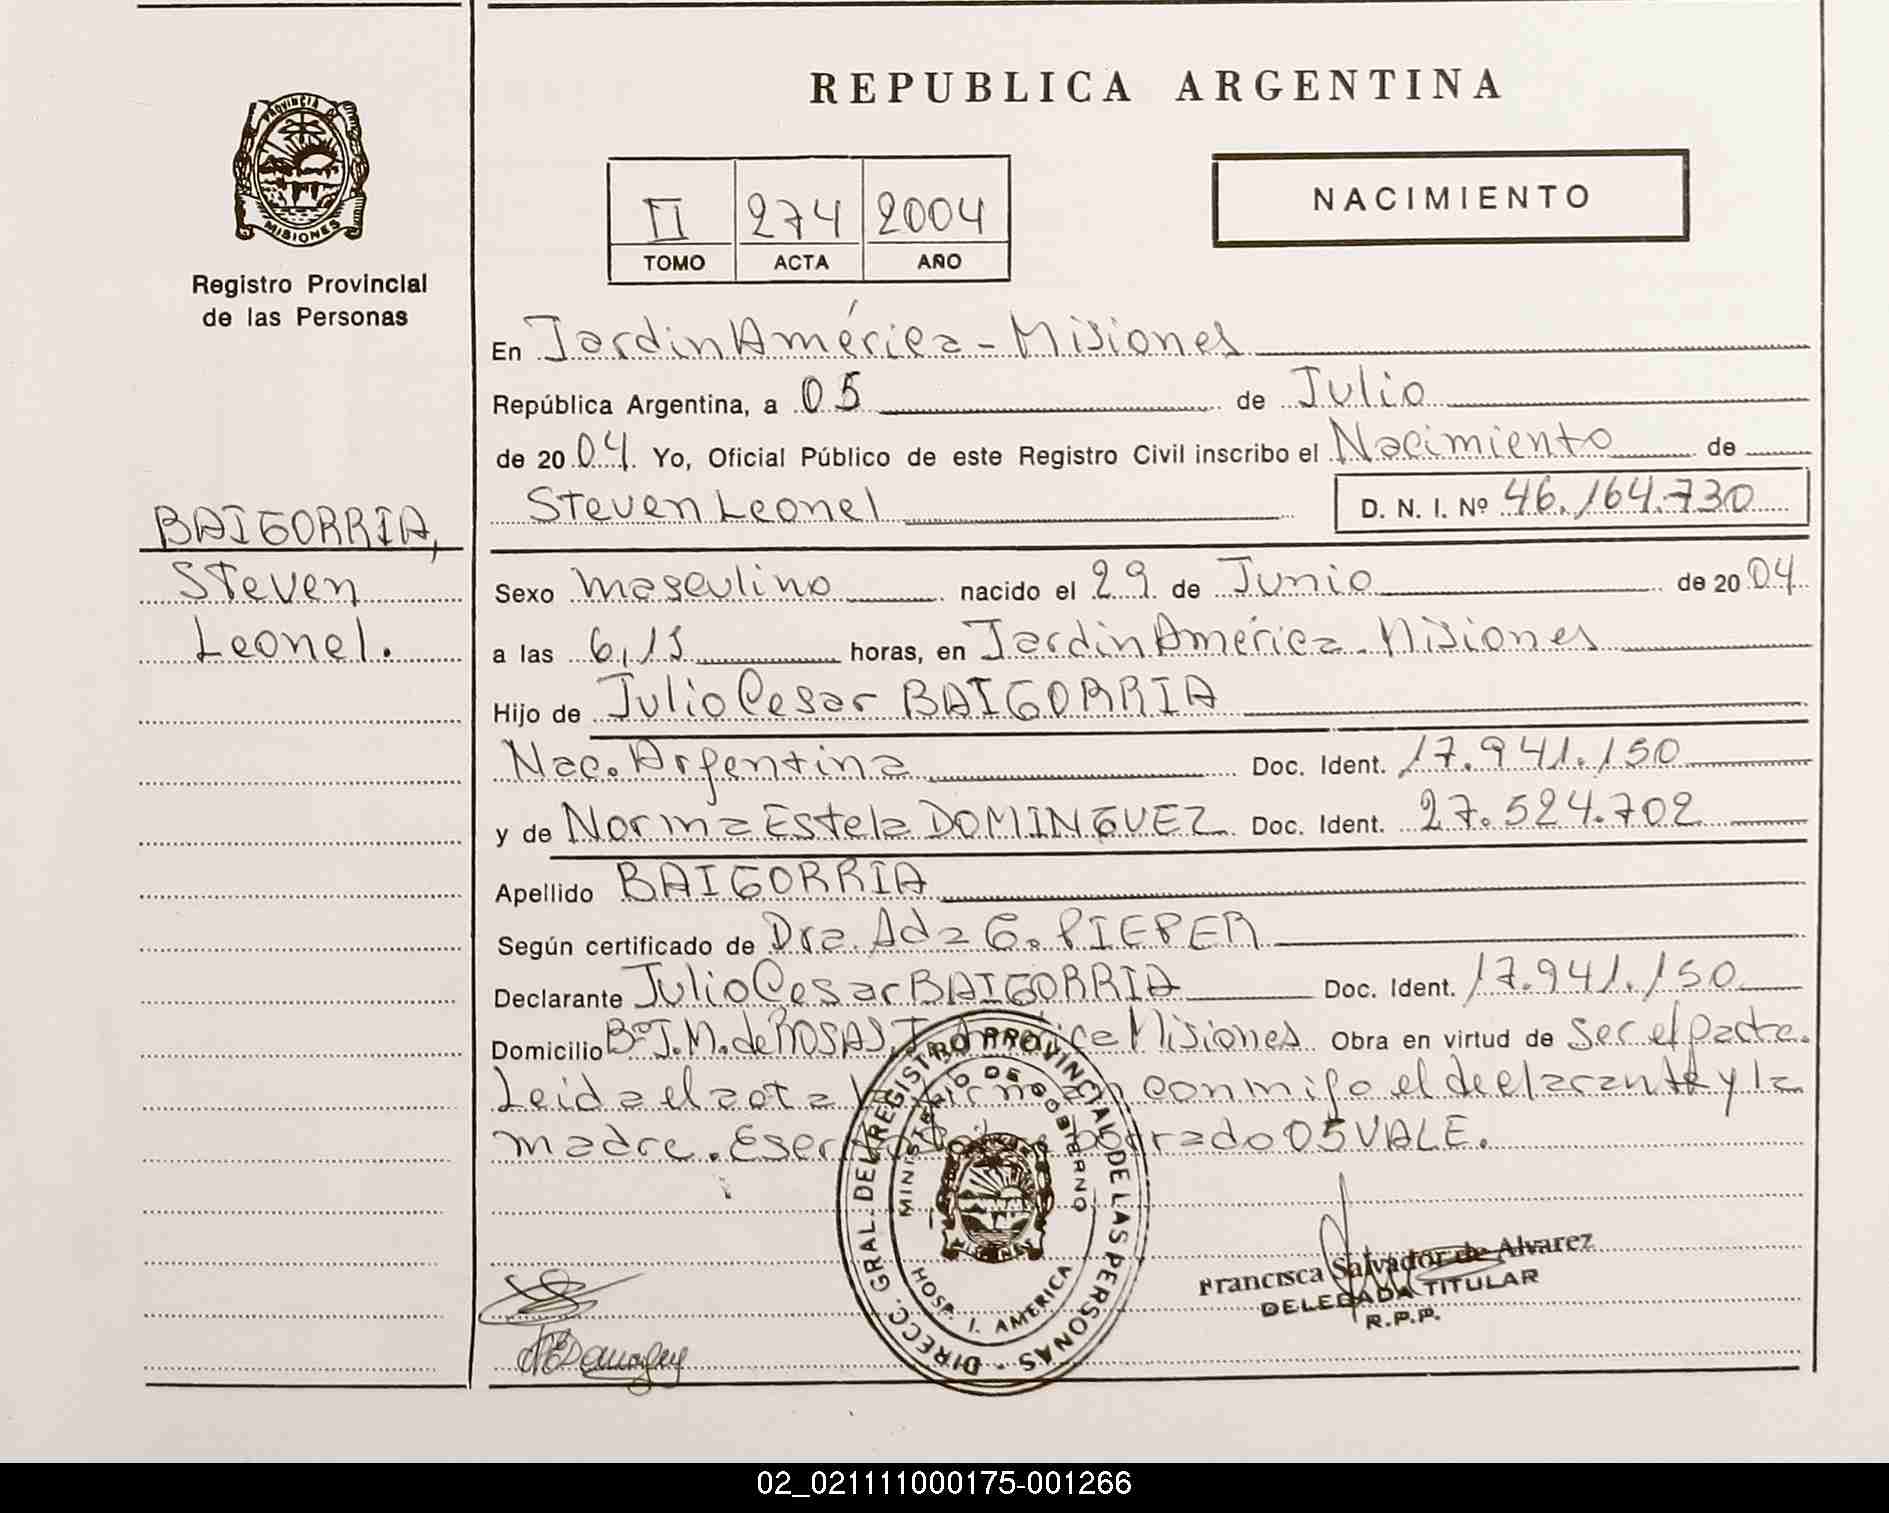 REPUBLICA ARGENTINA
PROVINCIA DE
MISIONES
Registro Provincial
de las Personas
II 274 2004
TOMO ACTA AÑO
NACIMIENTO
BAIGORRIA,
Steven
Leonel.
En Jardin América - Misiones
República Argentina, a 05 de Julio
de 2004. Yo, Oficial Público de este Registro Civil inscribo el Nacimiento de
Steven Leonel D. N. I. Nº 46.164.730
Sexo masculino nacido el 29 de Junio de 2004
a las 6,15 horas, en Jardin América - Misiones
Hijo de Julio Cesar BAIGORRIA
Nac. Argentina Doc. Ident. 17.941.150
y de Norma Estela DOMINGUEZ Doc. Ident. 27.524.702
Apellido BAIGORRIA
Según certificado de Dra. Ada G. PIEPER
Declarante Julio Cesar BAIGORRIA Doc. Ident. 17.941.150
Domicilio Bº J.M. de ROSAS, J. América Misiones Obra en virtud de ser el padre.
Leida el acta la firman conmigo el declarante y la
madre. borrado 05 VALE.
DIRECC. GRAL. DEL REGISTRO PROVINCIAL DE LAS PERSONAS
MINISTERIO DE GOBIERNO
MISIONES
HOSP. J. AMERICA
Francisca Salvador de Alvarez
DELEGADA TITULAR
R.P.P.
02_021111000175-001266